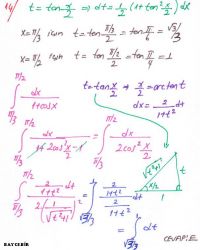 14) t = tan x/2 ⇒ dt = 1/2 (1+tan² x/2) dx
x = π/3 için t = tan (π/3)/2 = tan π/6 = √3/3
x = π/2 için t = tan (π/2)/2 = tan π/4 = 1
∫_{π/3}^{π/2} dx/(1+cosx)
t = tan x/2 ⇒ x/2 = arctan t
dx = 2/(1+t²) dt
∫_{π/3}^{π/2} dx/(1+2cos² x/2 − 1) = ∫_{π/3}^{π/2} dx/(2cos² x/2)
√t²+1
t
x/2
1
∫_{π/3}^{π/2} (2/(1+t²) dt)/(2(1/√t²+1)²) = ∫_{√3/3}^{1} (2/(1+t²))/(2/(1+t²)) dt
= ∫_{√3/3}^{1} dt
CEVAP: E
BAYGEBİR